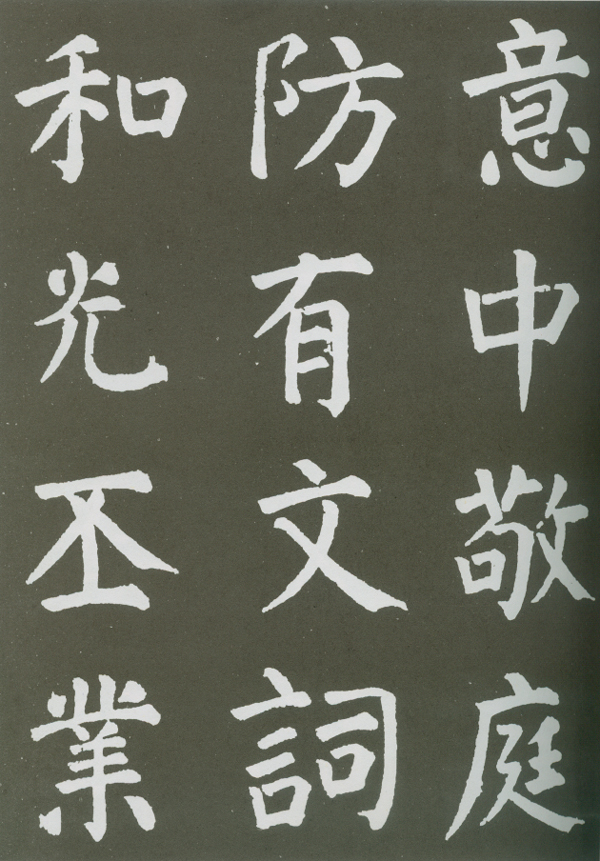 意中敬庭
防有文詞
和光丕業